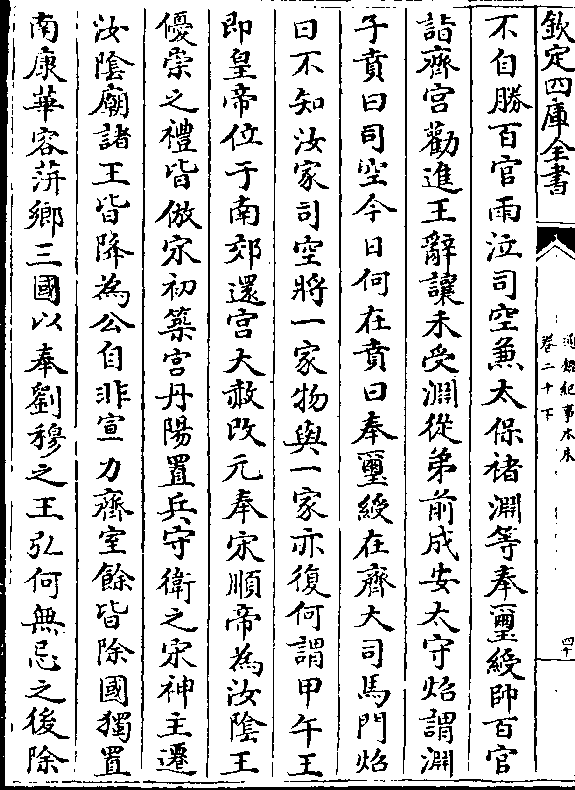 欽定四庫全書
通鑑紀事本末
卷二十下
四十
不自勝百官雨泣司空兼太保褚淵等奉璽綬帥百官
詣齊宫勸進王辭讓未受淵從弟前成安太守炤謂淵
子賁曰司空今日何在賁曰奉璽綬在齊大司馬門炤
曰不知汝家司空將一家物與一家亦復何謂甲午王
即皇帝位于南郊還宫大赦改元奉宋順帝為汝隂王
優崇之禮皆倣宋初築宫丹陽置兵守衛之宋神主遷
汝隂廟諸王皆降為公自非宣力齊室餘皆除國獨置
南康華容蓱鄉三國以奉劉穆之王弘何無忌之後除